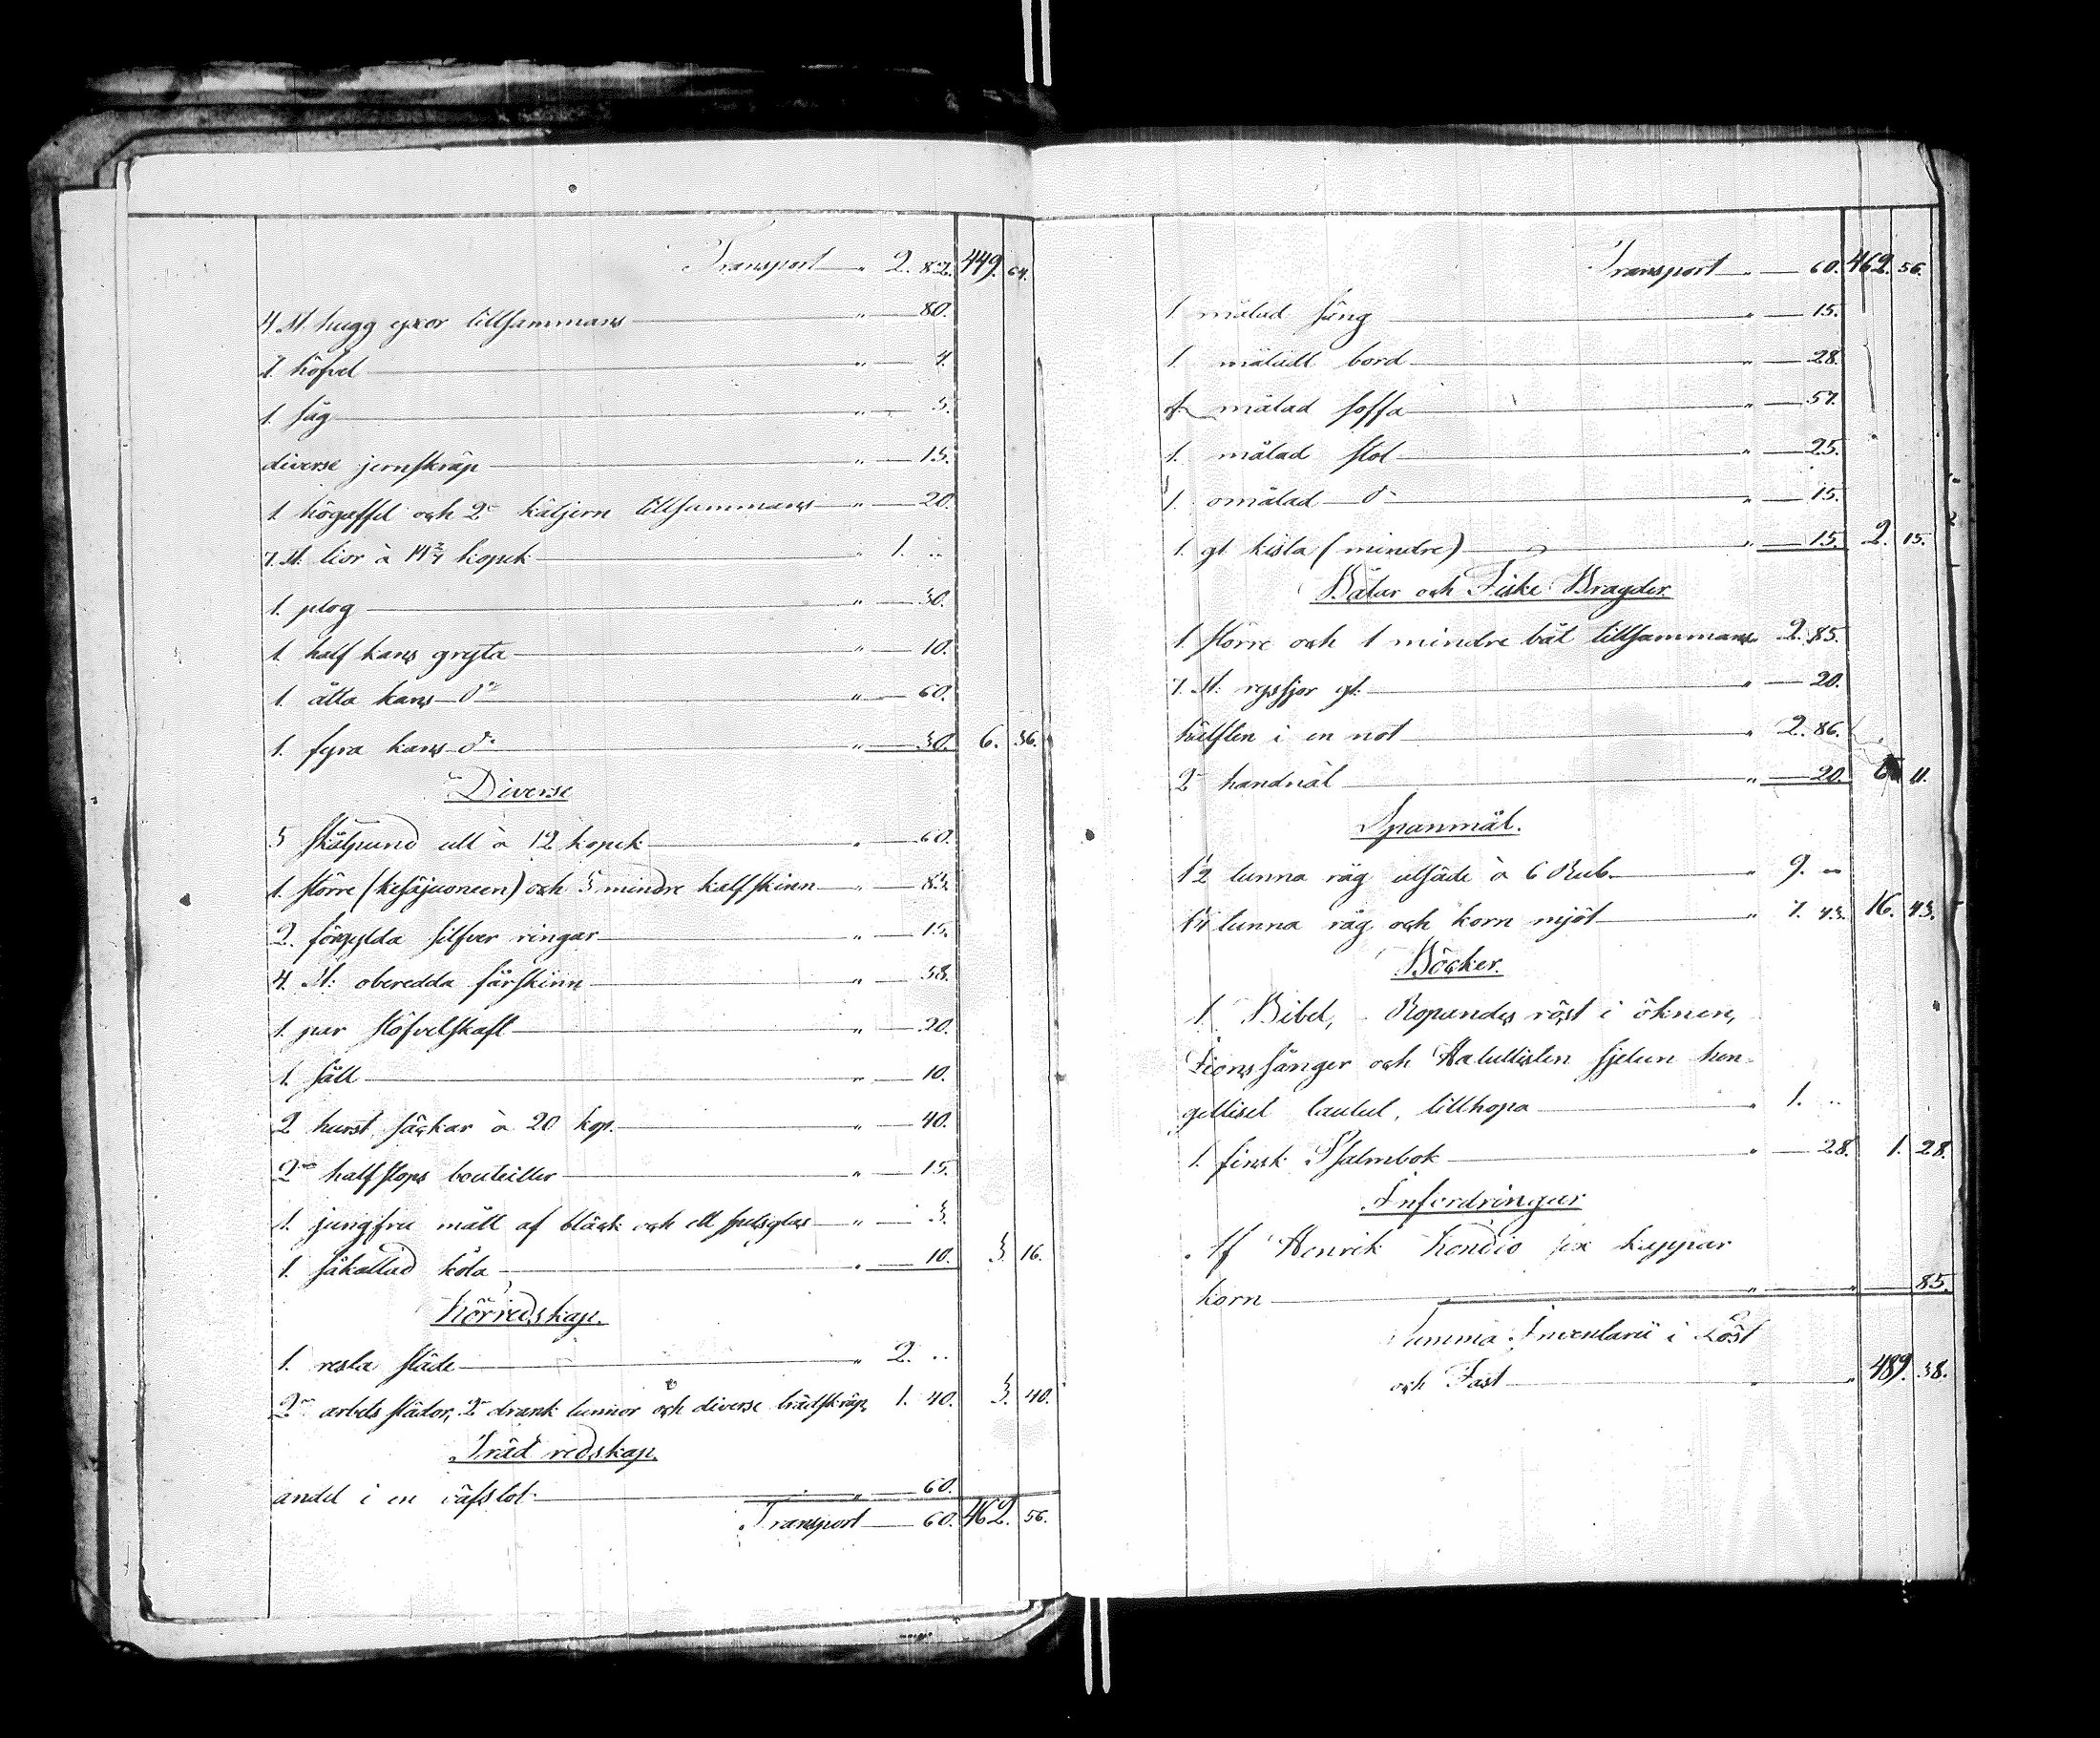 Transport „ 2. 82. 449. 64.
4 St. hugg yxor tillsammans „ — 80.
1. höfvel „ — 4.
1. såg „ — 5.
diverse jernskräp „ — 15.
1. högaffel och 2ne håljern tillsammans „ — 20.
7. St. lior à 14 2/7 kopek „ 1. „
1. plog „ — 30.
1. half kans gryta „ — 10.
1. åtta kans do „ — 60.
1. fyra kans do „ — 30. 6. 36.
Diverse
5 skålpund ull à 12 kopek „ — 60.
1. större (kesäjuoneen) och 5 mindre kalfskinn „ — 85.
2. förgylda silfver ringar „ — 15.
4. St: oberedda fårskinn „ — 58.
1. par stöfvelskaft „ — 20.
1. såll „ — 10.
2 hurst säckar à 20 kop. „ — 40.
2ne halfstops bouteiller „ — 15.
1. jungfru mått af bläck och ett spetsglas „ — 3.
1. såkallad kôta „ — 10. 3. 16.
Körredskap.
1. resla släde „ 2. „
2ne arbets slädor, 2ne drank tunnor och diverse trädskräp, 1. 40. 3. 40.
Träd redskap.
andel i en väfstol „ — 60.
Transport — 60. 462. 56.
Transport „ — 60. 462. 56.
1. målad säng „ — 15.
1. måladt bord „ — 28.
1. målad soffa „ — 57.
1. målad stol „ — 25.
1. omålad do „ — 15.
1. gl. kista (mindre) „ — 15. 2. 15.
Båtar och Fiske Bragder.
1 större och 1 mindre båt tillsammans 2. 85.
7. St: ryssjor gl. „ — 20.
hälften i en not „ 2. 86.
2ne handnät „ — 20. 6. 11.
Spanmål.
1 1/2 tunna råg utsäde à 6 Rub. „ 9. „
1 1/4 tunna råg och korn mjöl „ 7. 43. 16. 43.
Böcker.
1. Bibel, Ropandes röst i öknen,
Zions sånger och Halullisten sjelun hen-
gelliset laulut, tillhopa „ 1. „
1. finsk Psalmbok „ — 28. 1. 28.
Infordringar
Af Henrik Kendio sex kappar
korn „ „ — 85.
Summa Inventarii i Löst
och Fast „ „ 489. 38.